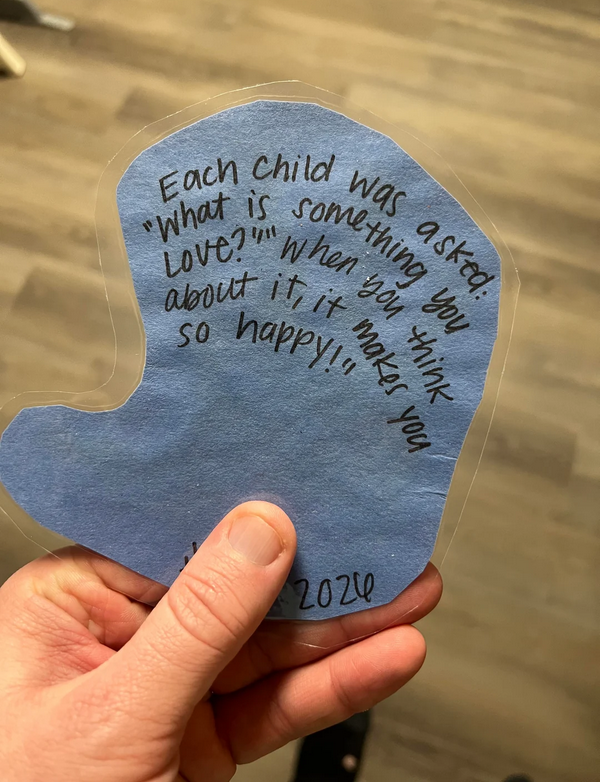 Each child was asked:
"What is something you
Love?"" when you think
about it, it makes you
so happy!"
2026